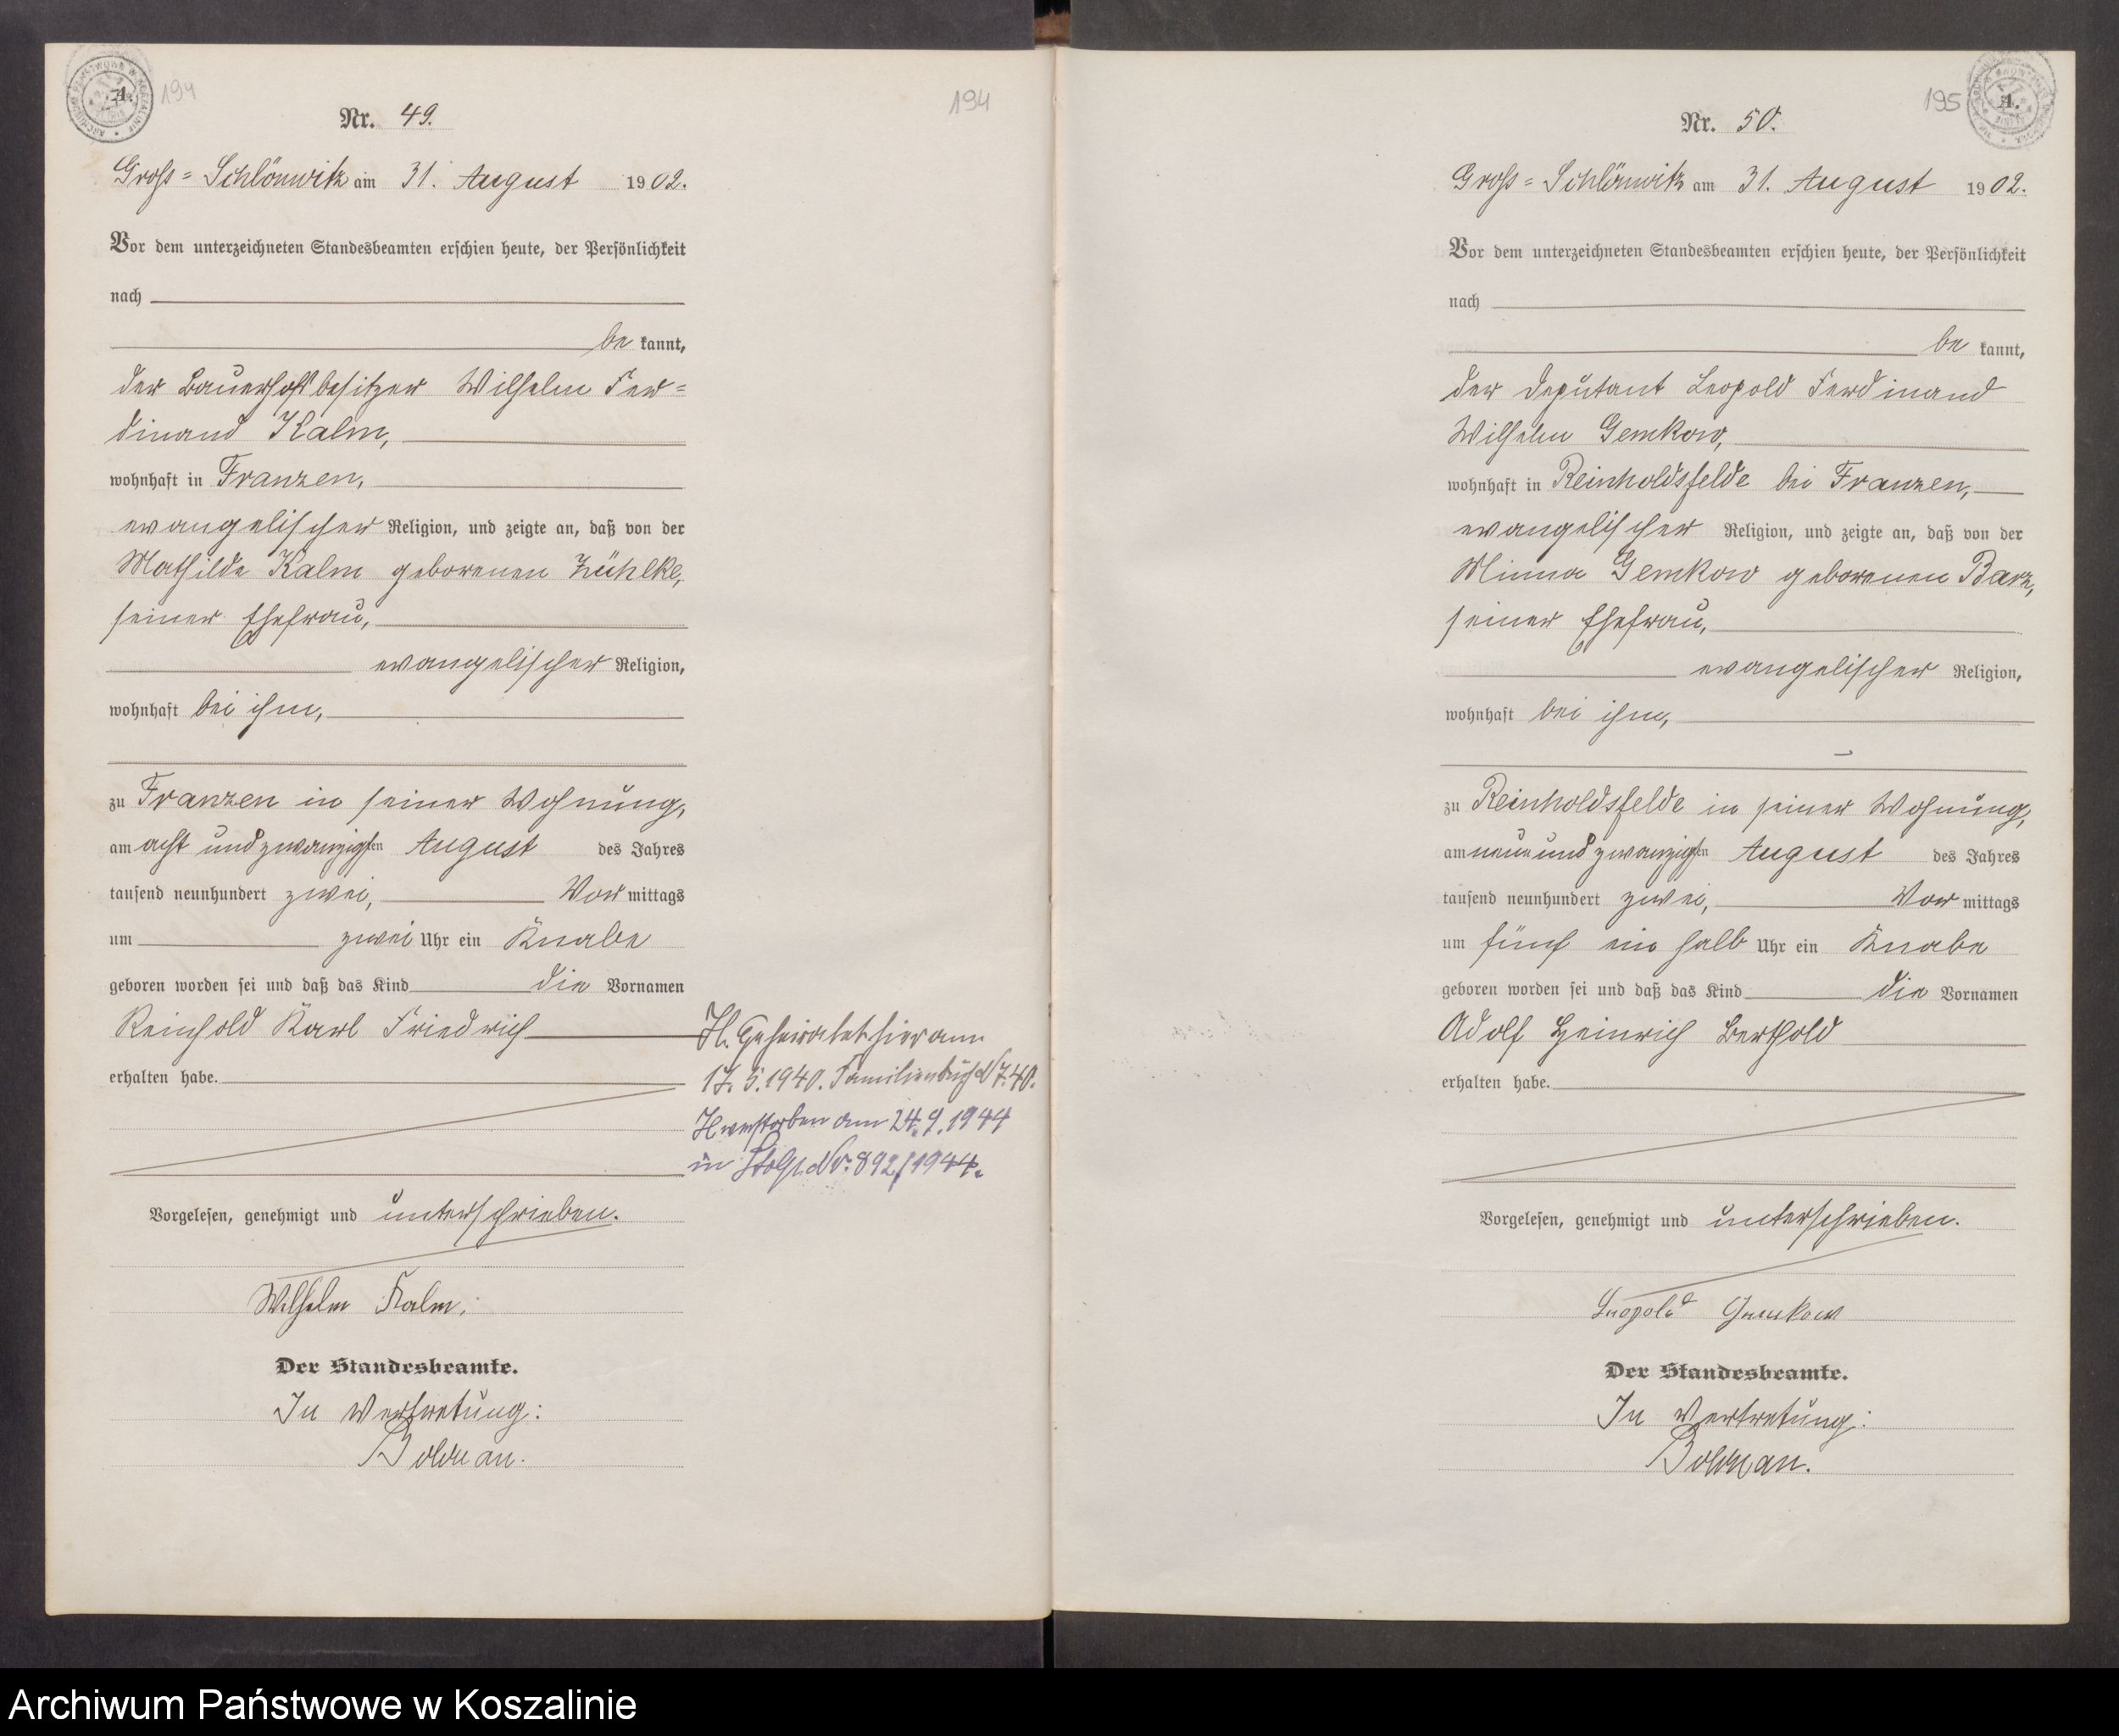 A.
194
194
Nr. 49.
Gross-Schlönwitz am 31. August 1902.
Vor dem unterzeichneten Standesbeamten erschien heute, der Persönlichkeit
nach
be kannt,
der Bauerhofsbesitzer Wilhelm Fer-
dinand Kalm,
wohnhaft in Franzen,
evangelischer Religion, und zeigte an, daß von der
Mathilde Kalm geborenen Zühlke,
seiner Ehefrau,
evangelischer Religion,
wohnhaft bei ihm,
zu Franzen in seiner Wohnung,
am acht und zwanzigsten August des Jahres
tausend neunhundert zwei, Vor mittags
um zwei Uhr ein Knabe
geboren worden sei und daß das Kind die Vornamen
Reinhold Karl Friedrich
erhalten habe.
H. Geheiratet hier am
17.5.1940. Familienbuch N 7.40.
H verstorben am 24.9.1944
in Stolp. Nr. 892/1944.
Vorgelesen, genehmigt und unterschrieben.
Wilhelm Kalm.
Der Standesbeamte.
In Vertretung:
195
A.
Nr. 50.
Gross-Schlönwitz am 31. August 1902.
Vor dem unterzeichneten Standesbeamten erschien heute, der Persönlichkeit
nach
be kannt,
der Deputant Leopold Ferdinand
Wilhelm Gemkow,
wohnhaft in Reinholdsfelde bei Franzen,
evangelischer Religion, und zeigte an, daß von der
Minna Gemkow geborenen Barz,
seiner Ehefrau,
evangelischer Religion,
wohnhaft bei ihm,
zu Reinholdsfelde in seiner Wohnung,
am neun und zwanzigsten August des Jahres
tausend neunhundert zwei, Vor mittags
um fünf ein halb Uhr ein Knabe
geboren worden sei und daß das Kind die Vornamen
Adolf Heinrich Berthold
erhalten habe.
Vorgelesen, genehmigt und unterschrieben.
Leopold Gemkow
Der Standesbeamte.
In Vertretung:
Archiwum Państwowe w Koszalinie